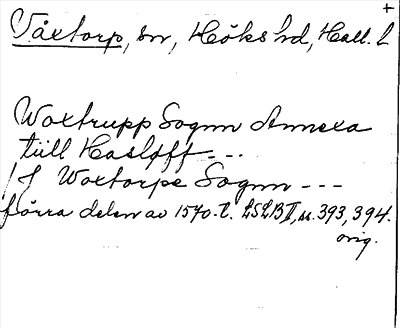 +
Våxtorp, sn, Höks hd, Hall. l
Woxtrupp Sognn Annexa
tiill Hasløff ---
I f Woxtorpe Sognn ---
förra delen av 1570-t. LSLB II, ss. 393, 394.
orig.